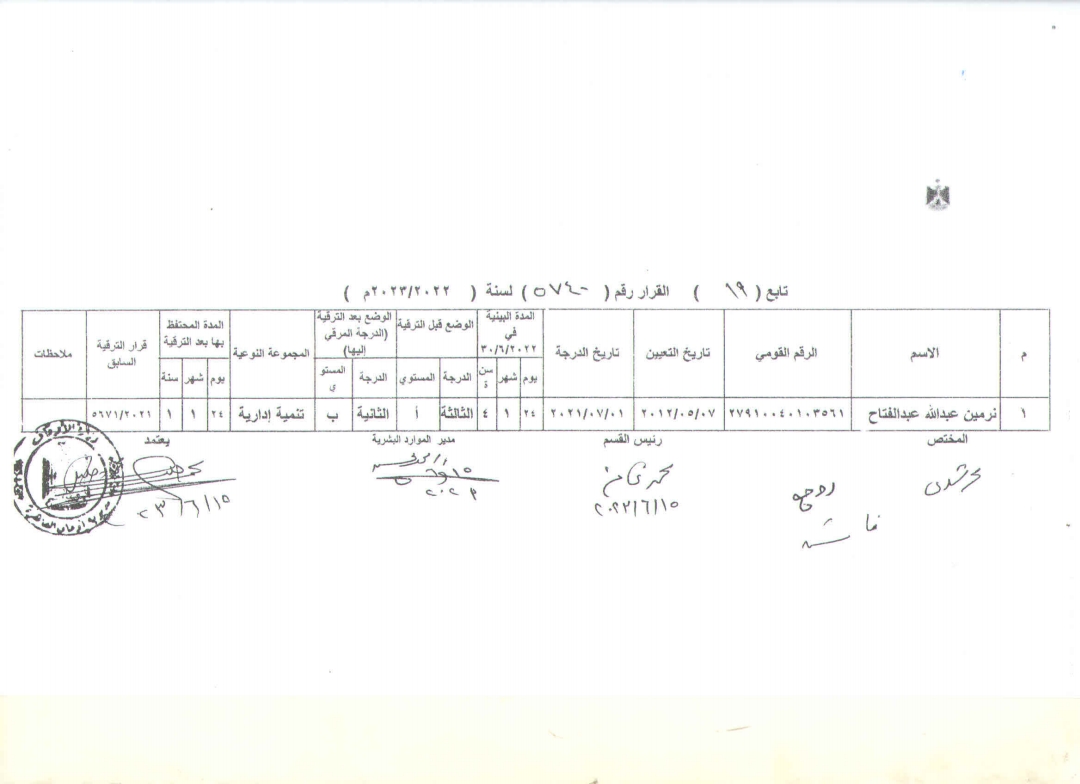 تابع ( ١٩ ) القرار رقم ( ٥٧٤٠ ) لسنة ( ٢٠٢٣/٢٠٢٢م )
م	الاسم	الرقم القومي	تاريخ التعيين	تاريخ الدرجة	المدة البينية في ٣٠/٦/٢٠٢٢	الوضع قبل الترقية	الوضع بعد الترقية (الدرجة المرقي إليها)	المجموعة النوعية	المدة المحتفظ بها بعد الترقية	قرار الترقية السابق	ملاحظات
يوم	شهر	سنة	الدرجة	المستوي	الدرجة	المستوي	يوم	شهر	سنة
١	نرمين عبدالله عبدالفتاح	٢٧٩١٠٠٤٠١٠٣٥٦١	٢٠١٢/٠٥/٠٧	٢٠٢١/٠٧/٠١	٢٤	١	٤	الثالثة	أ	الثانية	ب	تنمية إدارية	٢٤	١	١	٥٦٧١/٢٠٢١
المختص	رئيس القسم	مدير الموارد البشرية	يعتمد